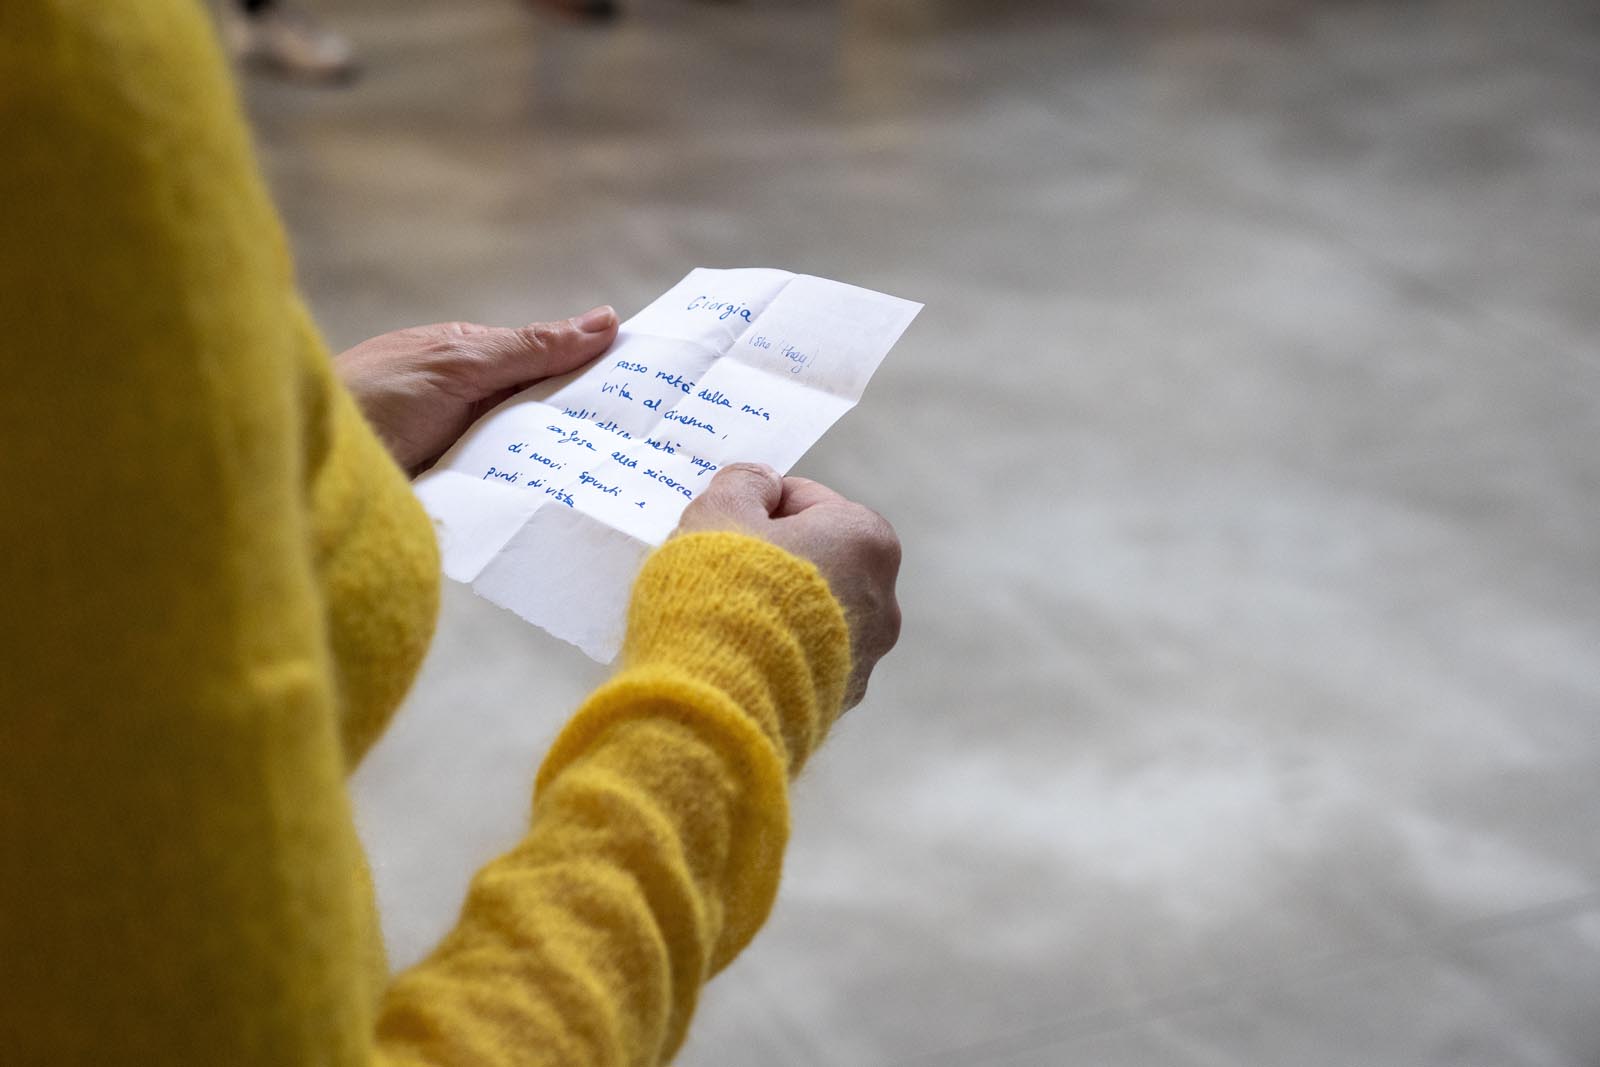 Giorgia
(she/they)
passo metà della mia
vita al cinema,
nell'altra metà vago
confusa alla ricerca
di nuovi spunti e
punti di vista